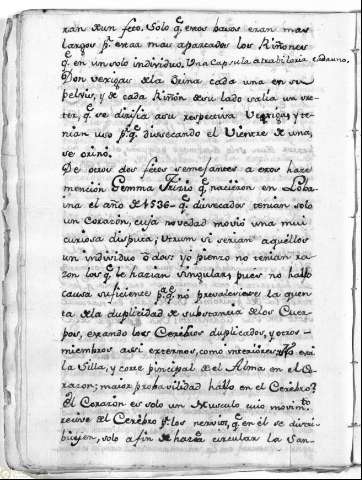 ran de un feto. Solo q.e estos basos eran mas
largos p.r estar mas apartados los Riñones
q.e en un solo individuo. Una Capsula atrabiliaria cada uno,
Dos vexigas de la Orina cada una en su
pelvis, y de cada Riñón de su lado salía un ure
ter, q.e se dirigia a su respectiva Vexiga, y te-
nian uso p.r q.e dissecando el Vientre de una,
se orinó.
De otros dos fetos semejantes a estos hace
mención Gemma Frisio q.e nacieron en Loba-
ina el año de 1536 - q.e disecados tenian solo
un Corazón, cuja novedad movió una mui
curiosa disputa, Utrum si serian aquéllos
un individuo ó dos: yo pienzo no tenian ra
zon los q.e le hazian singular; pués no hallo
causa suficiente p.a q.e no prevaleciese la quen
ta de la duplicidad de substancia de los Cuer
pos, estando los Cerebros duplicados, y otros -
miembros assi externos, como interiores. No está
la Silla, y corte principal de el Alma en el Co
razon; maior probavilidad hallo en el Cerebro,
El Corazón es solo un Musculo cuio movim.to
recive de el Cérebro p.r los nervios, q.e en él se distri-
buiejen, solo a fin de hazer circular la San-